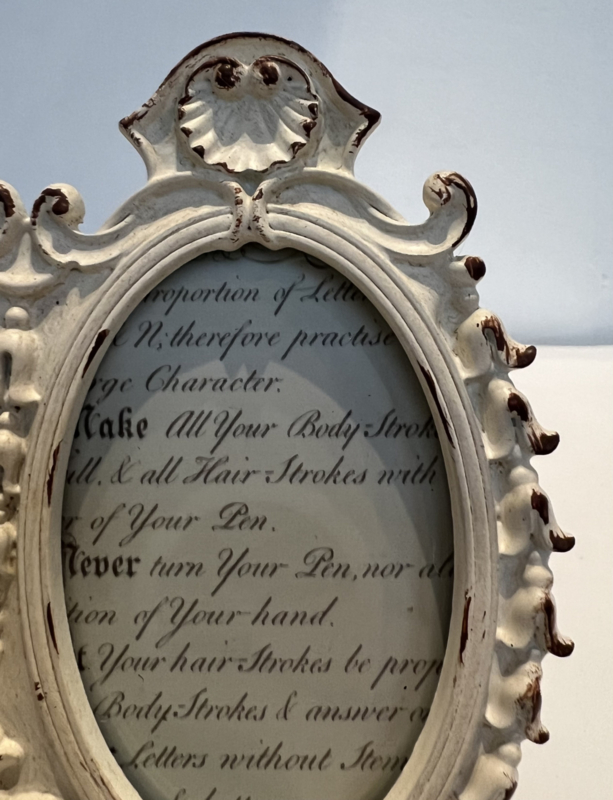 roportion of Lette
& N; therefore practise
rge Character.
Make All Your Body-Strok
ill, & all Hair-Strokes with
r of Your Pen.
Never turn Your Pen, nor al
tion of Your hand.
Your hair-Strokes be prop
Body-Strokes & answer o
Letters without Stem